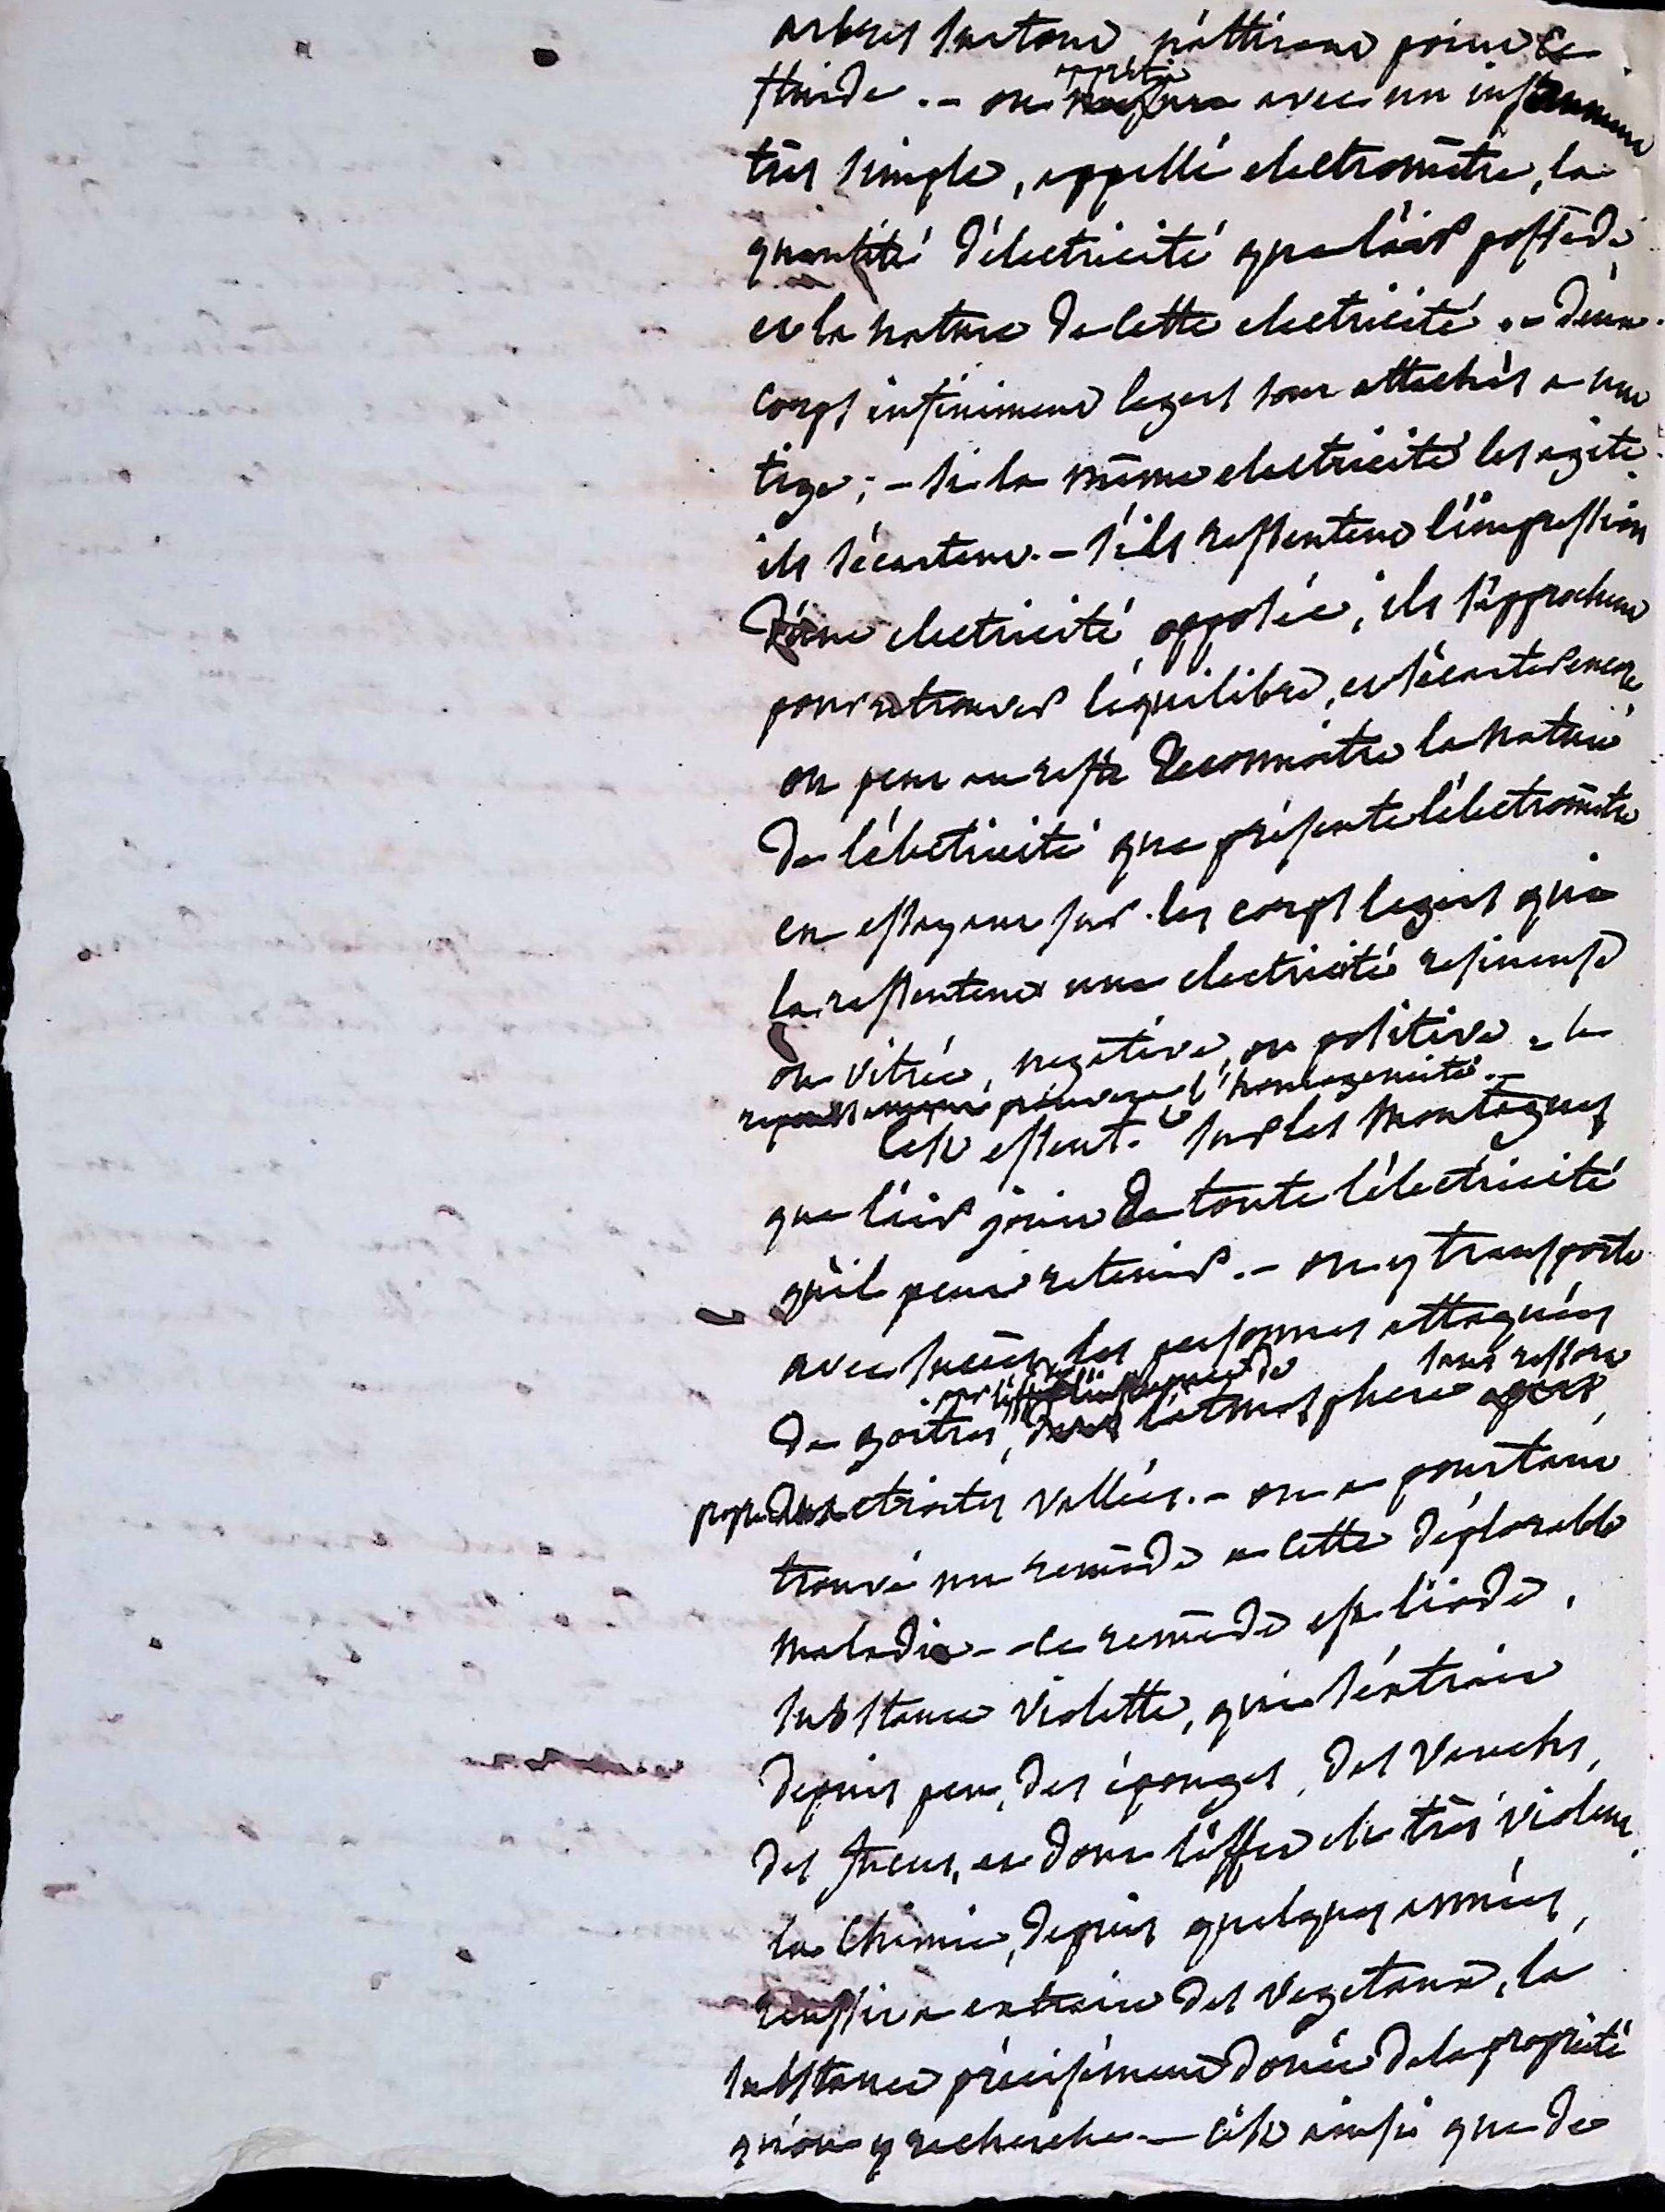 arbres surtout n'attirent point ce
fluide. – on apprécie avec un instrument
très simple, appellé electromètre, la
quantité d'électricité que l'air possède,
et la nature de cette electricité. – deux
corps infiniment legers sont attachés a une
tige; – si la même electricité les agite
ils s'écartent. – s'ils ressentent l'impression
d'une electricité opposée, ils s'approchent
pour retrouver l'équilibre, et s'écarter encore
on peut au reste reconnoitre la nature
de l'électricité que présente l'électromètre
en essayant sur les corps legers qui
la ressentent une electricité resineuse
ou vitrée, negative, ou positive – le
prouvera l'homogeneité. –
c'est essent. sur les montagnes
que l'air jouit de toute l'électricité
qu'il peut retenir. – on y transporte
avec succès les personnes attaquées
sans ressort
de goitres, l'atmosphere
etroites vallées. – on a pourtant
trouvé un remède a cette déplorable
maladie – ce remède est l'iode,
substance violette, qui s'extrait
depuis peu, des éponges, des varechs,
des fucus, et dont l'effet est très violent.
la chimie, depuis quelques années,
reussit a extraire des vegetaux, la
substance précisément douée de la propriété
qu'on y recherche – c'est ainsi que de